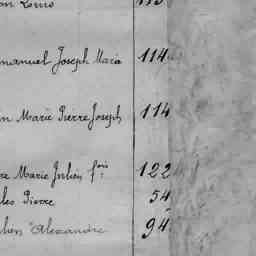 Louis 113
Emmanuel Joseph Marie 114
in Marie Pierre Joseph 114
re Marie Julien fois 122
les Pierre 54
lien Alexandre 94